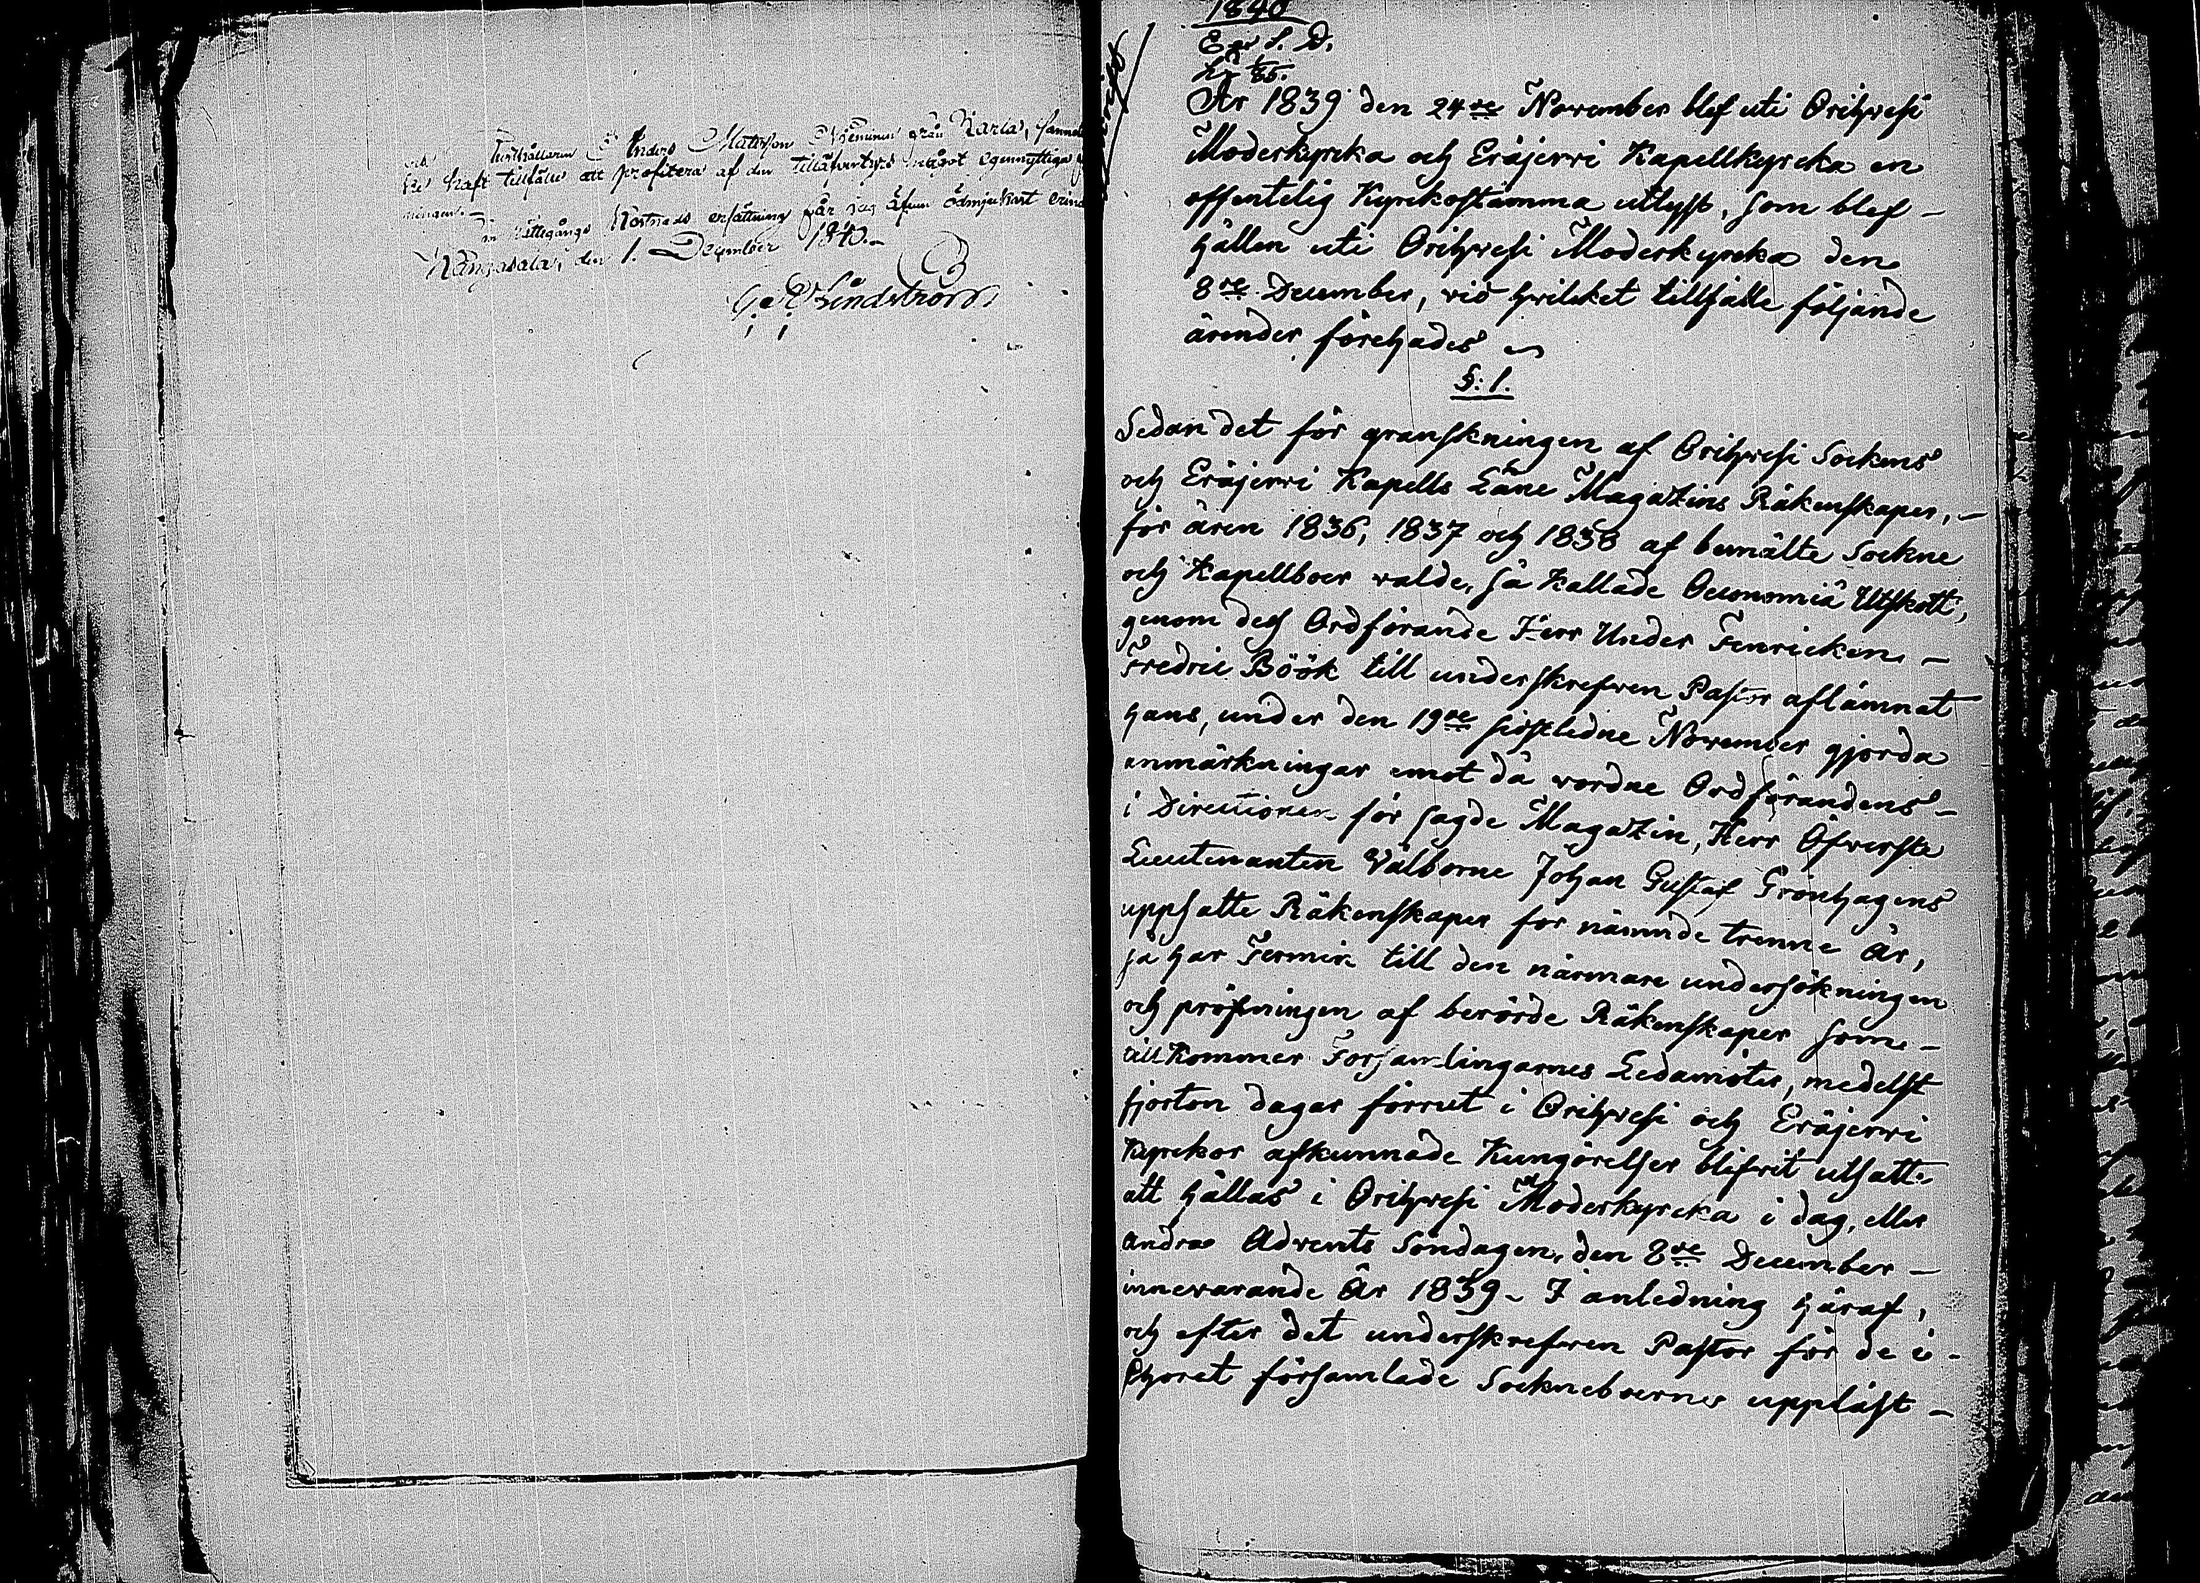 Anders Matsson från Karla,
haft tillfälle att profitera af den tilläfventyrs något egennyttiga
ningen.
Rättegångs Kostnads ersättning får jag äfven ödmjukast
Kangasala, den 1. December 1840.
Lindström
1840
E. S. D.
No 85.
År 1839 den 24de November blef uti Orihvesi
Moderkyrcka och Eräjervi Kapellkyrcka en
offentelig Kyrckostämma utlyst, som blef
hållen uti Orihvesi Moderkyrcka den
8de December, vid hvilcket tillfälle följande
ärender förehades
§: 1.
Sedan det för granskningen af Orihvesi Sockens
och Eräjervi Kapells Låne Magazins Räkenskaper,
för åren 1836, 1837 och 1838 af bemälte Sockne
och Kapellboer valde, så kallade Oeconomiä Utskott,
genom dess Ordförande Herr Under Fenricken
Fredric Böök till underskrefven Pastor aflämnat
hans, under den 19de sistledne November gjorda
anmärkningar emot då vordne Ordförandens
i Directionen för sagde Magazin, Herr Öfverste
Lieutenanten Välborne Johan Gustaf Grönhagens
uppsatte Räkenskaper för nämnde trenne år,
så har Termin till den närmare undersökningen
och pröfningen af berörde Räkenskaper som
tillkommer Församlingarnes Ledamöter, medelst
fjorton dagar förrut i Orihvesi och Eräjervi
Kyrckor afkunnade Kungörelser blifvit utsatt
att hållas i Orihvesi Moderkyrcka i dag, eller
andra Advents Söndagen, den 8de December
innevarande År 1839 - I anledning häraf,
och efter det underskrefven Pastor för de i
Choret församlade Sockneboerne uppläst